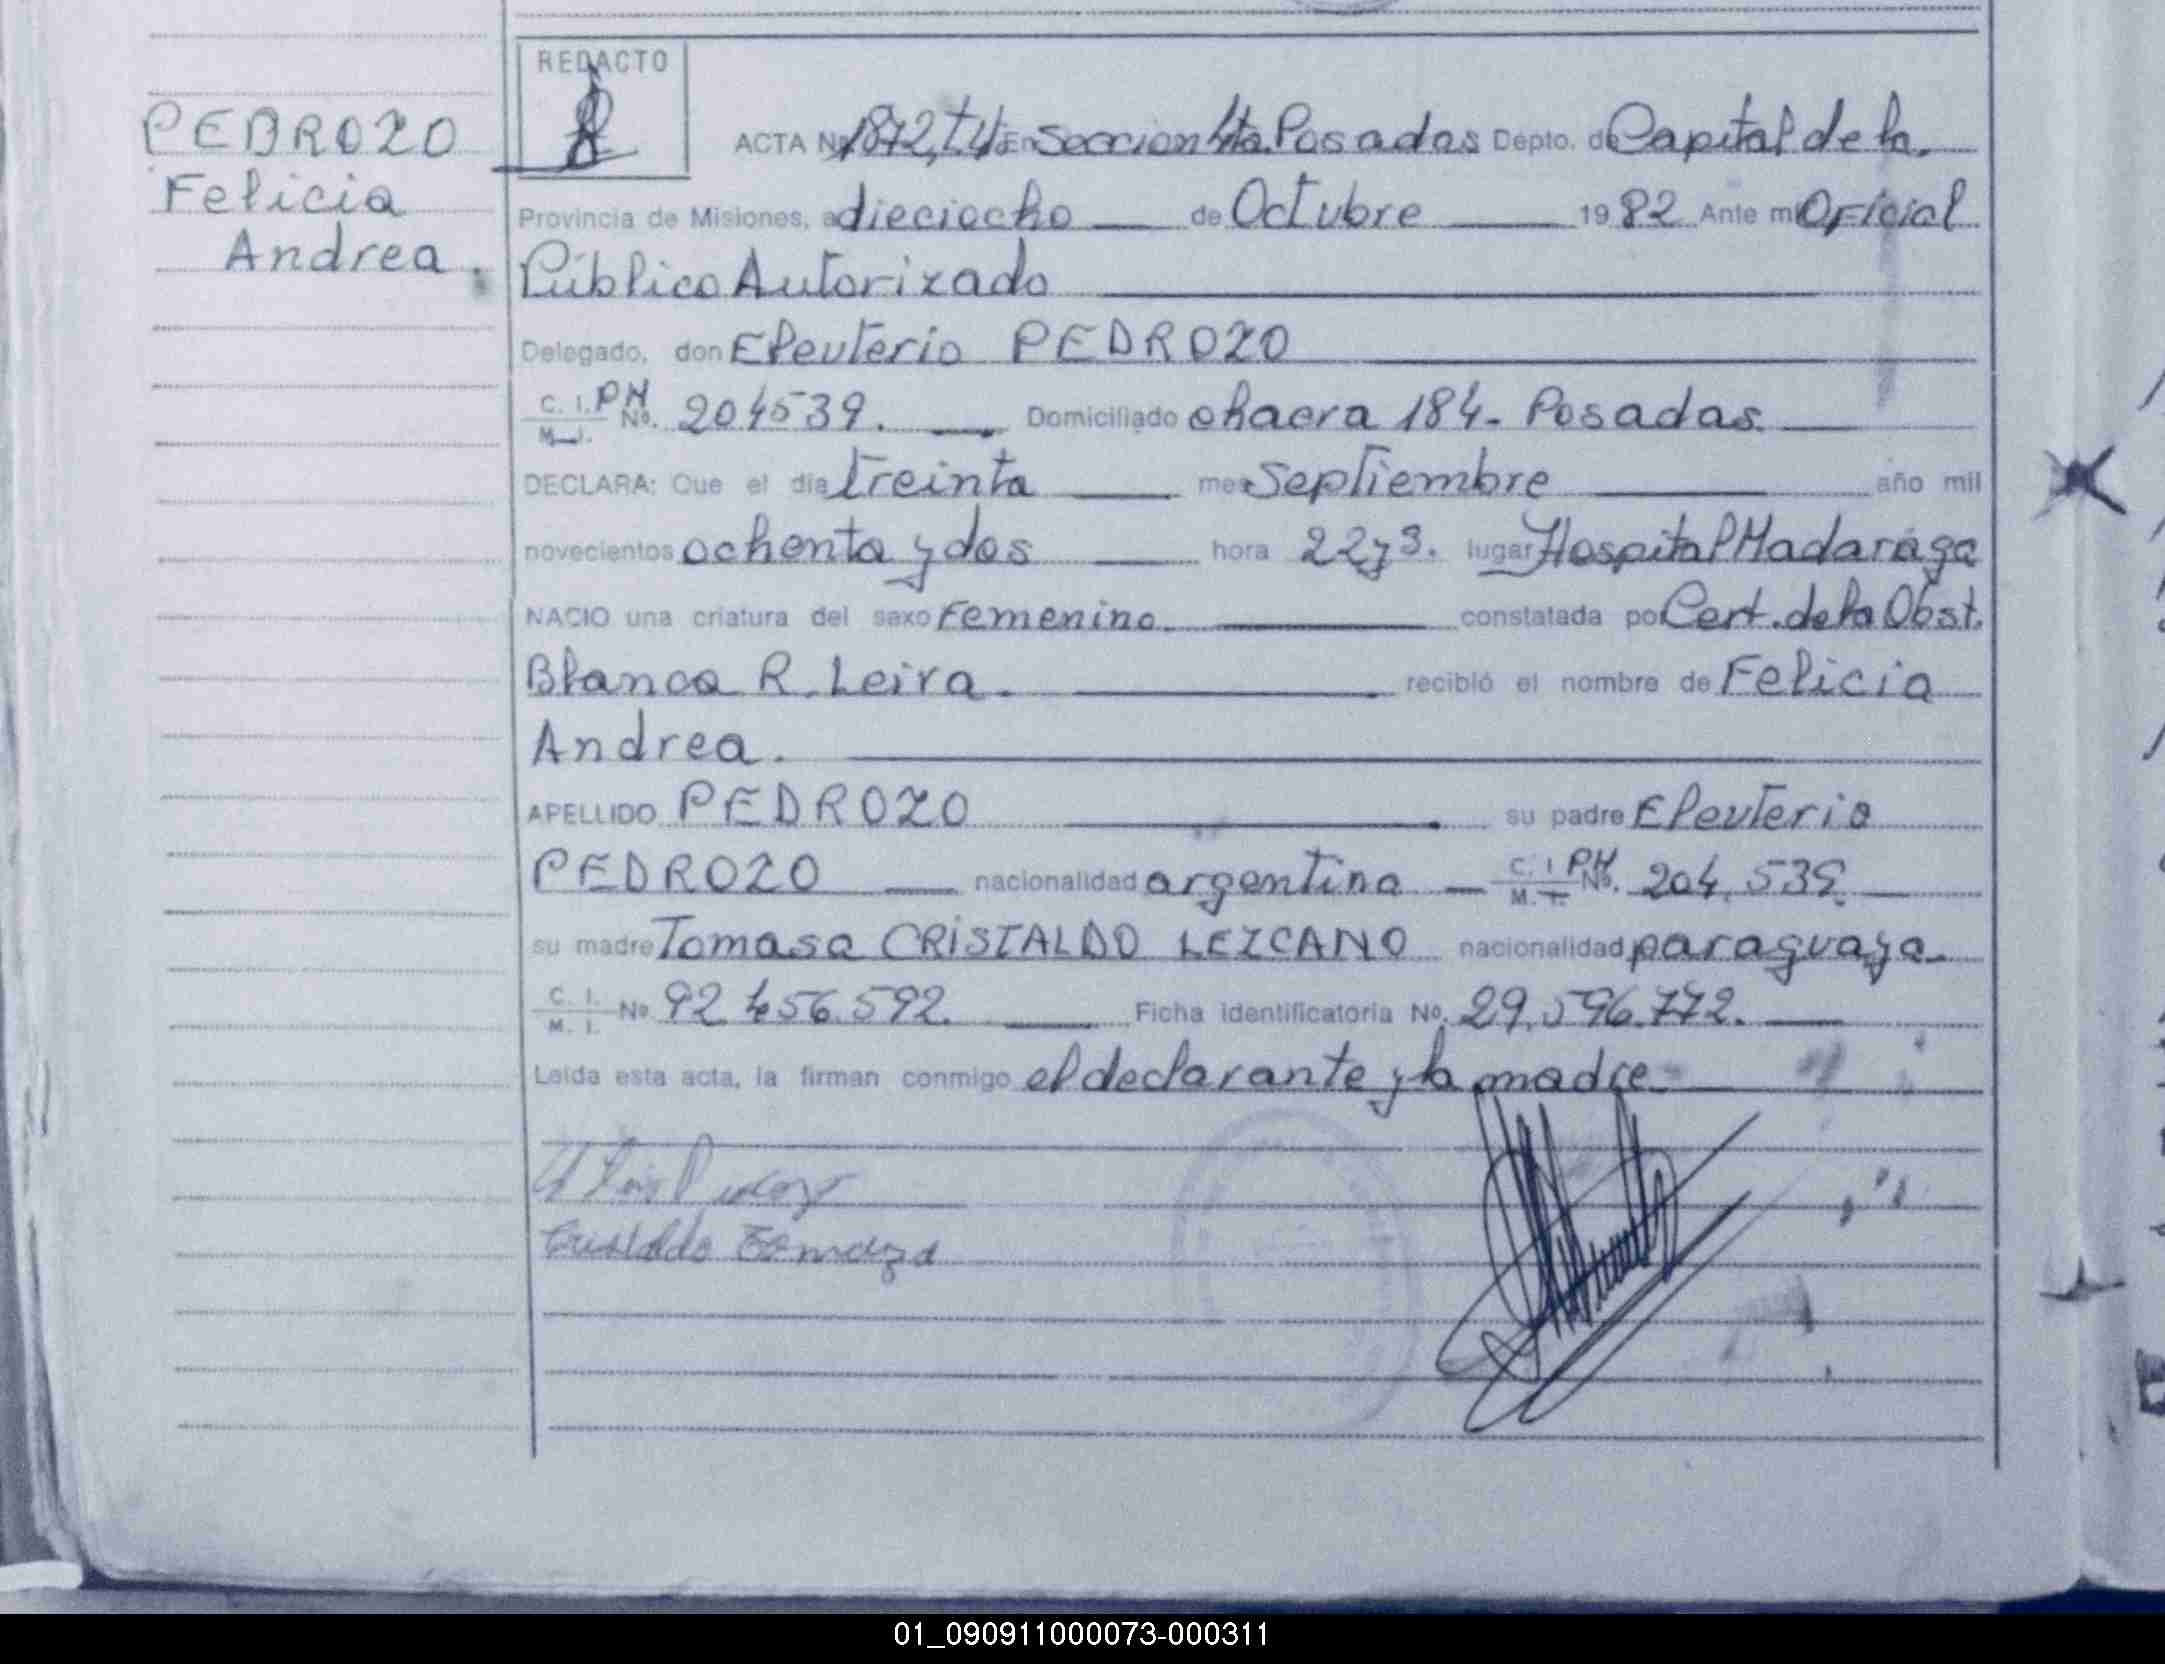 REDACTO
PEDROZO
Felicia
Andrea.
ACTA No 1872, T. IV En Sección 4ta. Posadas Depto. de Capital de la.
Provincia de Misiones, a dieciocho de Octubre 1982 Ante mi Oficial
Público Autorizado
Delegado, don Eleuterio PEDROZO
C. I. PM No. 204539. Domiciliado chacra 184- Posadas.
M. I.
DECLARA: Que el día treinta mes Septiembre año mil
novecientos ochenta y dos hora 22 y 3. lugar Hospital Madariaga
NACIO una criatura del sexo Femenino. constatada por Cert. de la Obst.
Blanca R. Leiva. recibió el nombre de Felicia
Andrea.
APELLIDO PEDROZO su padre Eleuterio
PEDROZO nacionalidad argentina C. I. PM No. 204.539.
M. I.
su madre Tomasa CRISTALDO LEZCANO nacionalidad paraguaya.
C. I. No 92.456.592. Ficha identificatoria No. 29.596.772.
M. I.
Leída esta acta, la firman conmigo el declarante y la madre
Cristaldo Tomaza
01_090911000073-000311